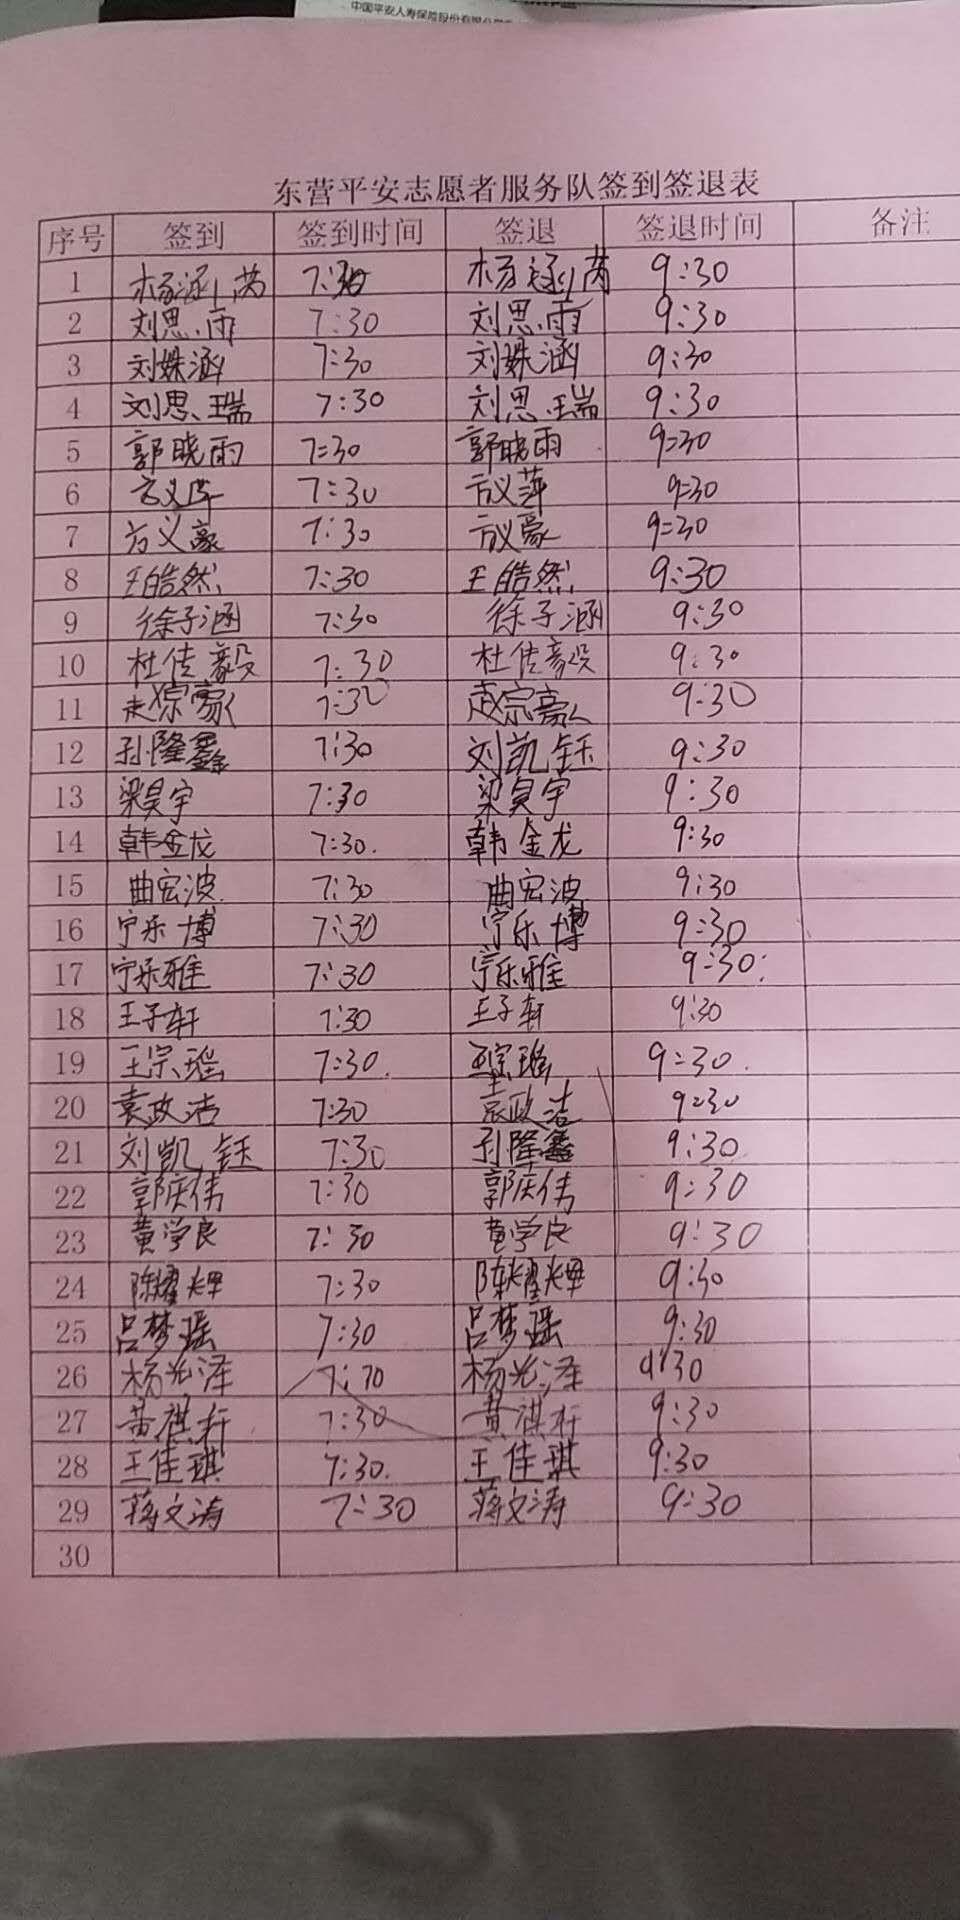 中国平安人寿保险股份有限公司
东营平安志愿者服务队签到签退表
序号 签到 签到时间 签退 签退时间 备注
1 杨涵芮 7:30 杨涵芮 9:30
2 刘思雨 7:30 刘思雨 9:30
3 刘姝涵 7:30 刘姝涵 9:30
4 刘思瑞 7:30 刘思瑞 9:30
5 郭晓雨 7:30 郭晓雨 9:30
6 方义萍 7:30 方义萍 9:30
7 方义豪 7:30 方义豪 9:30
8 王皓然 7:30 王皓然 9:30
9 徐子涵 7:30 徐子涵 9:30
10 杜传毅 7:30 杜传毅 9:30
11 赵宗豪 7:30 赵宗豪 9:30
12 孙隆鑫 7:30 刘凯钰 9:30
13 梁昊宇 7:30 梁昊宇 9:30
14 韩金龙 7:30. 韩金龙 9:30
15 曲宏波 7:30 曲宏波 9:30
16 宁乐博 7:30 宁乐博 9:30
17 宁乐雅 7:30 宁乐雅 9:30
18 王子轩 7:30 王子轩 9:30
19 王宗瑶 7:30. 王宗瑶 9:30.
20 袁政洁 7:30 袁政洁 9:30
21 刘凯钰 7:30 孙隆鑫 9:30
22 郭庆伟 7:30 郭庆伟 9:30
23 黄学良 7:30 黄学良 9:30
24 陈耀辉 7:30 陈耀辉 9:30
25 吕梦瑶 7:30 吕梦瑶 9:30
26 杨光泽 7:30 杨光泽 9:30
27 黄祺 7:30 黄祺 9:30
28 王佳琪 7:30. 王佳琪 9:30
29 蒋文涛 7:30 蒋文涛 9:30
30